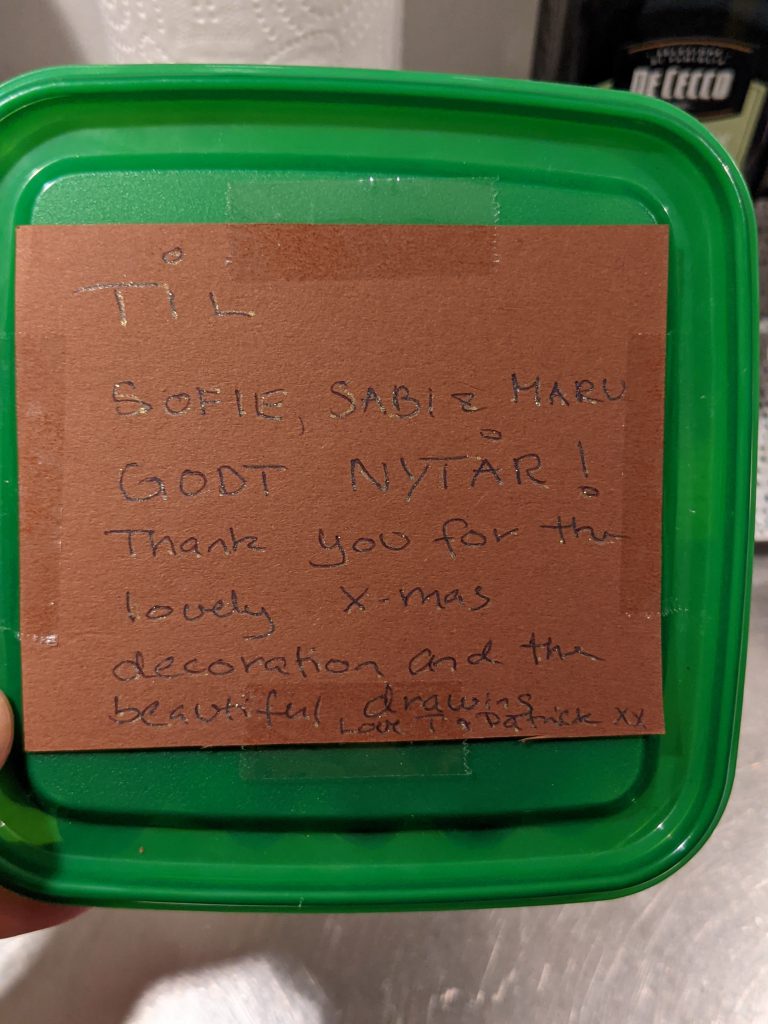 TiL
SOFIE, SABI & MARU
GODT NYTÅR!
Thank you for the
lovely X-mas
decoration and the
beautiful drawing
Love T & Patrick xx
DE CECCO